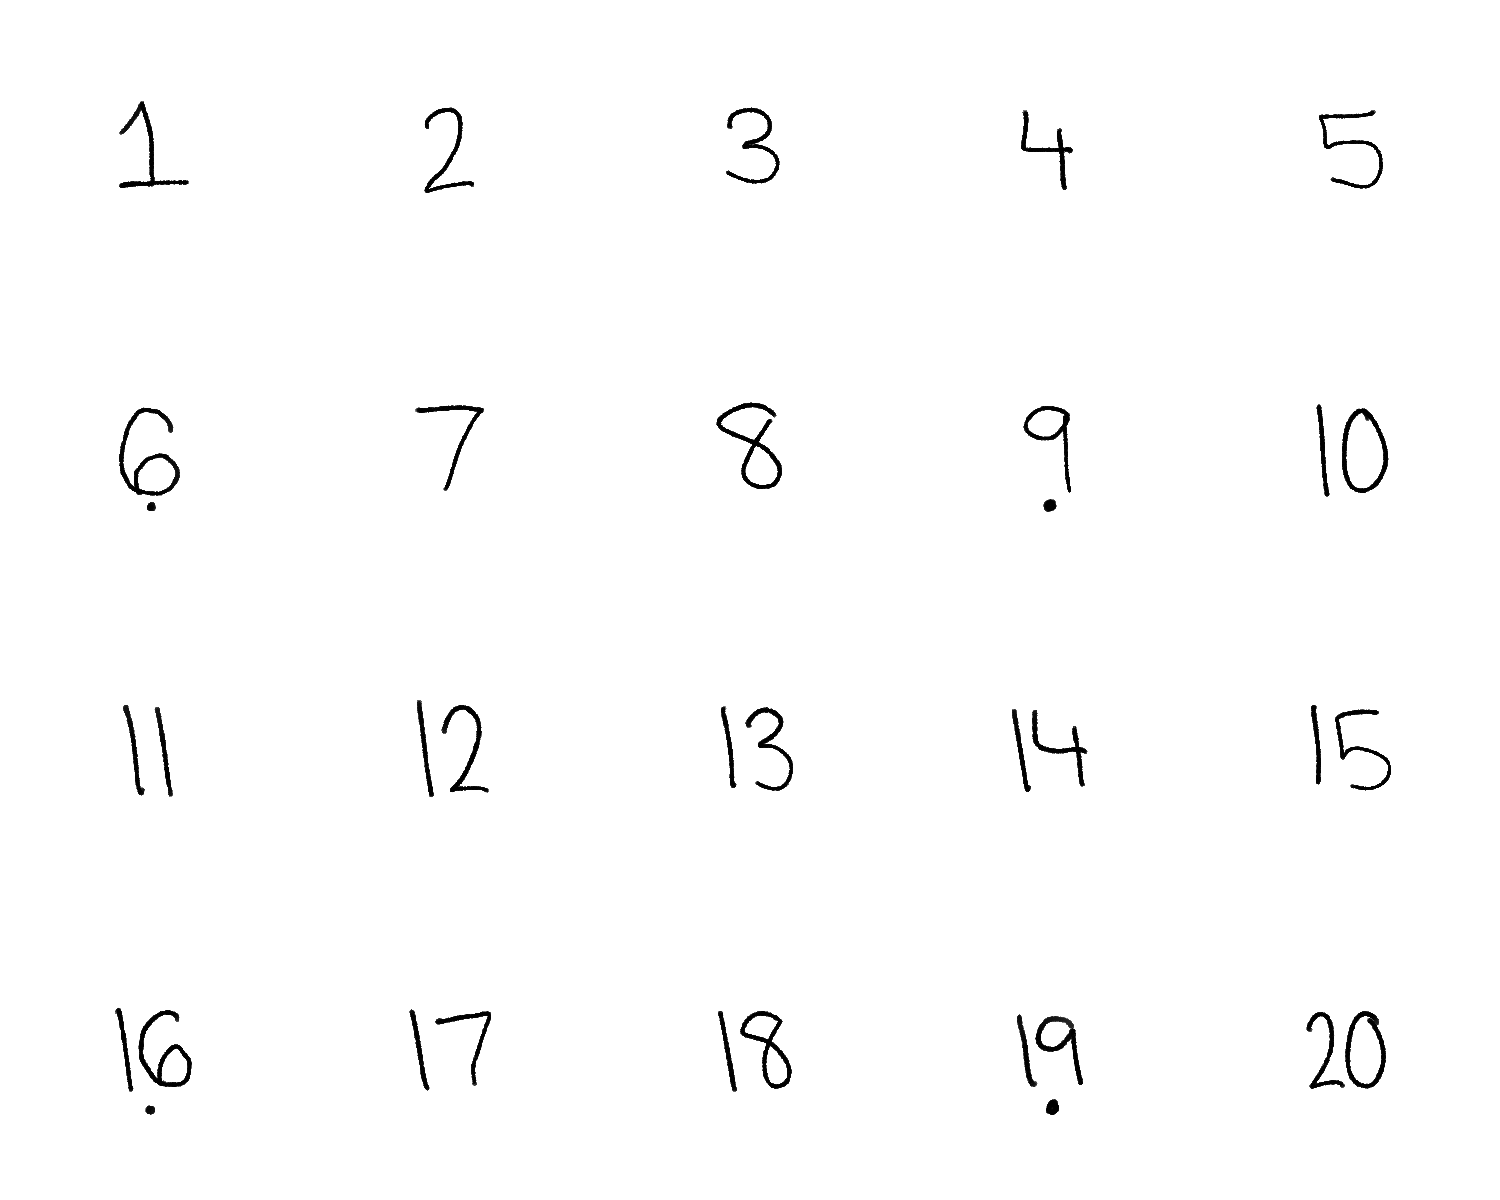 1 2 3 4 5
6. 7 8 9. 10
11 12 13 14 15
16. 17 18 19. 20